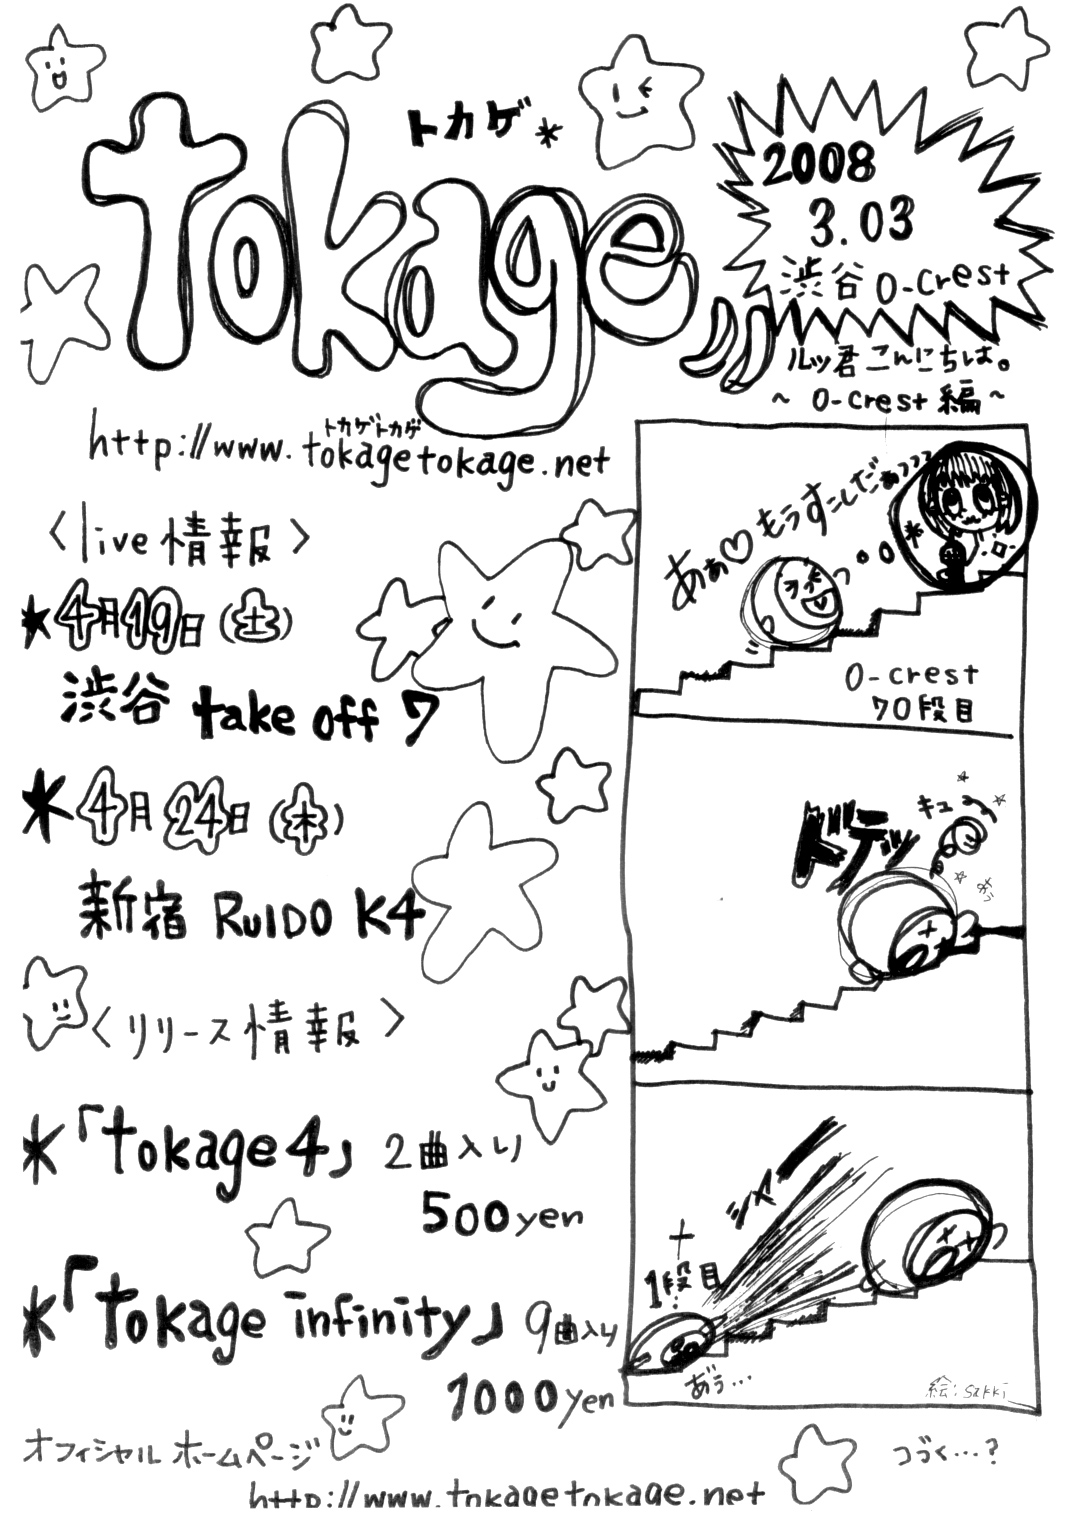 トカゲ*
tokage
2008
3.03
渋谷 O-Crest
ルッ君こんにちは。
~ O-crest 編 ~
トカゲトカゲ
http://www.tokagetokage.net
<live 情報>
*4月19日(土)
渋谷 take off 7
*4月24日(木)
新宿 RUIDO K4
<リリース情報>
*「tokage4」2曲入り
500yen
*「tokage infinity」9曲入り
1000yen
オフィシャル ホームページ
http://www.tokagetokage.net
あぁ♡もうすこしだぁっっっ
O-crest
70段目
ドデッ
キュ〜
シャー
1段目
あ゛ぅ...
絵:sakki
つづく...?